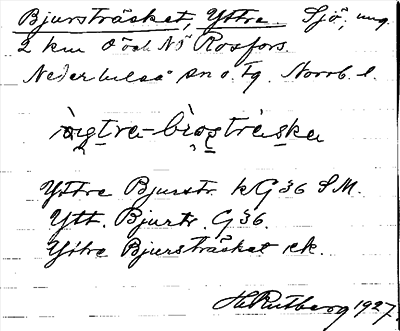 Bjursträsket, Yttre. Sjö, ung.
2 km O och NO Rosfors.
Nederluleå sn o. tg. Norrb. l.
Yttre Bjurstr. kG 36 S.M.
Ytt. Bjurtr. G 36.
Yttre Bjursträsket ek.
H. Rutberg 1927.